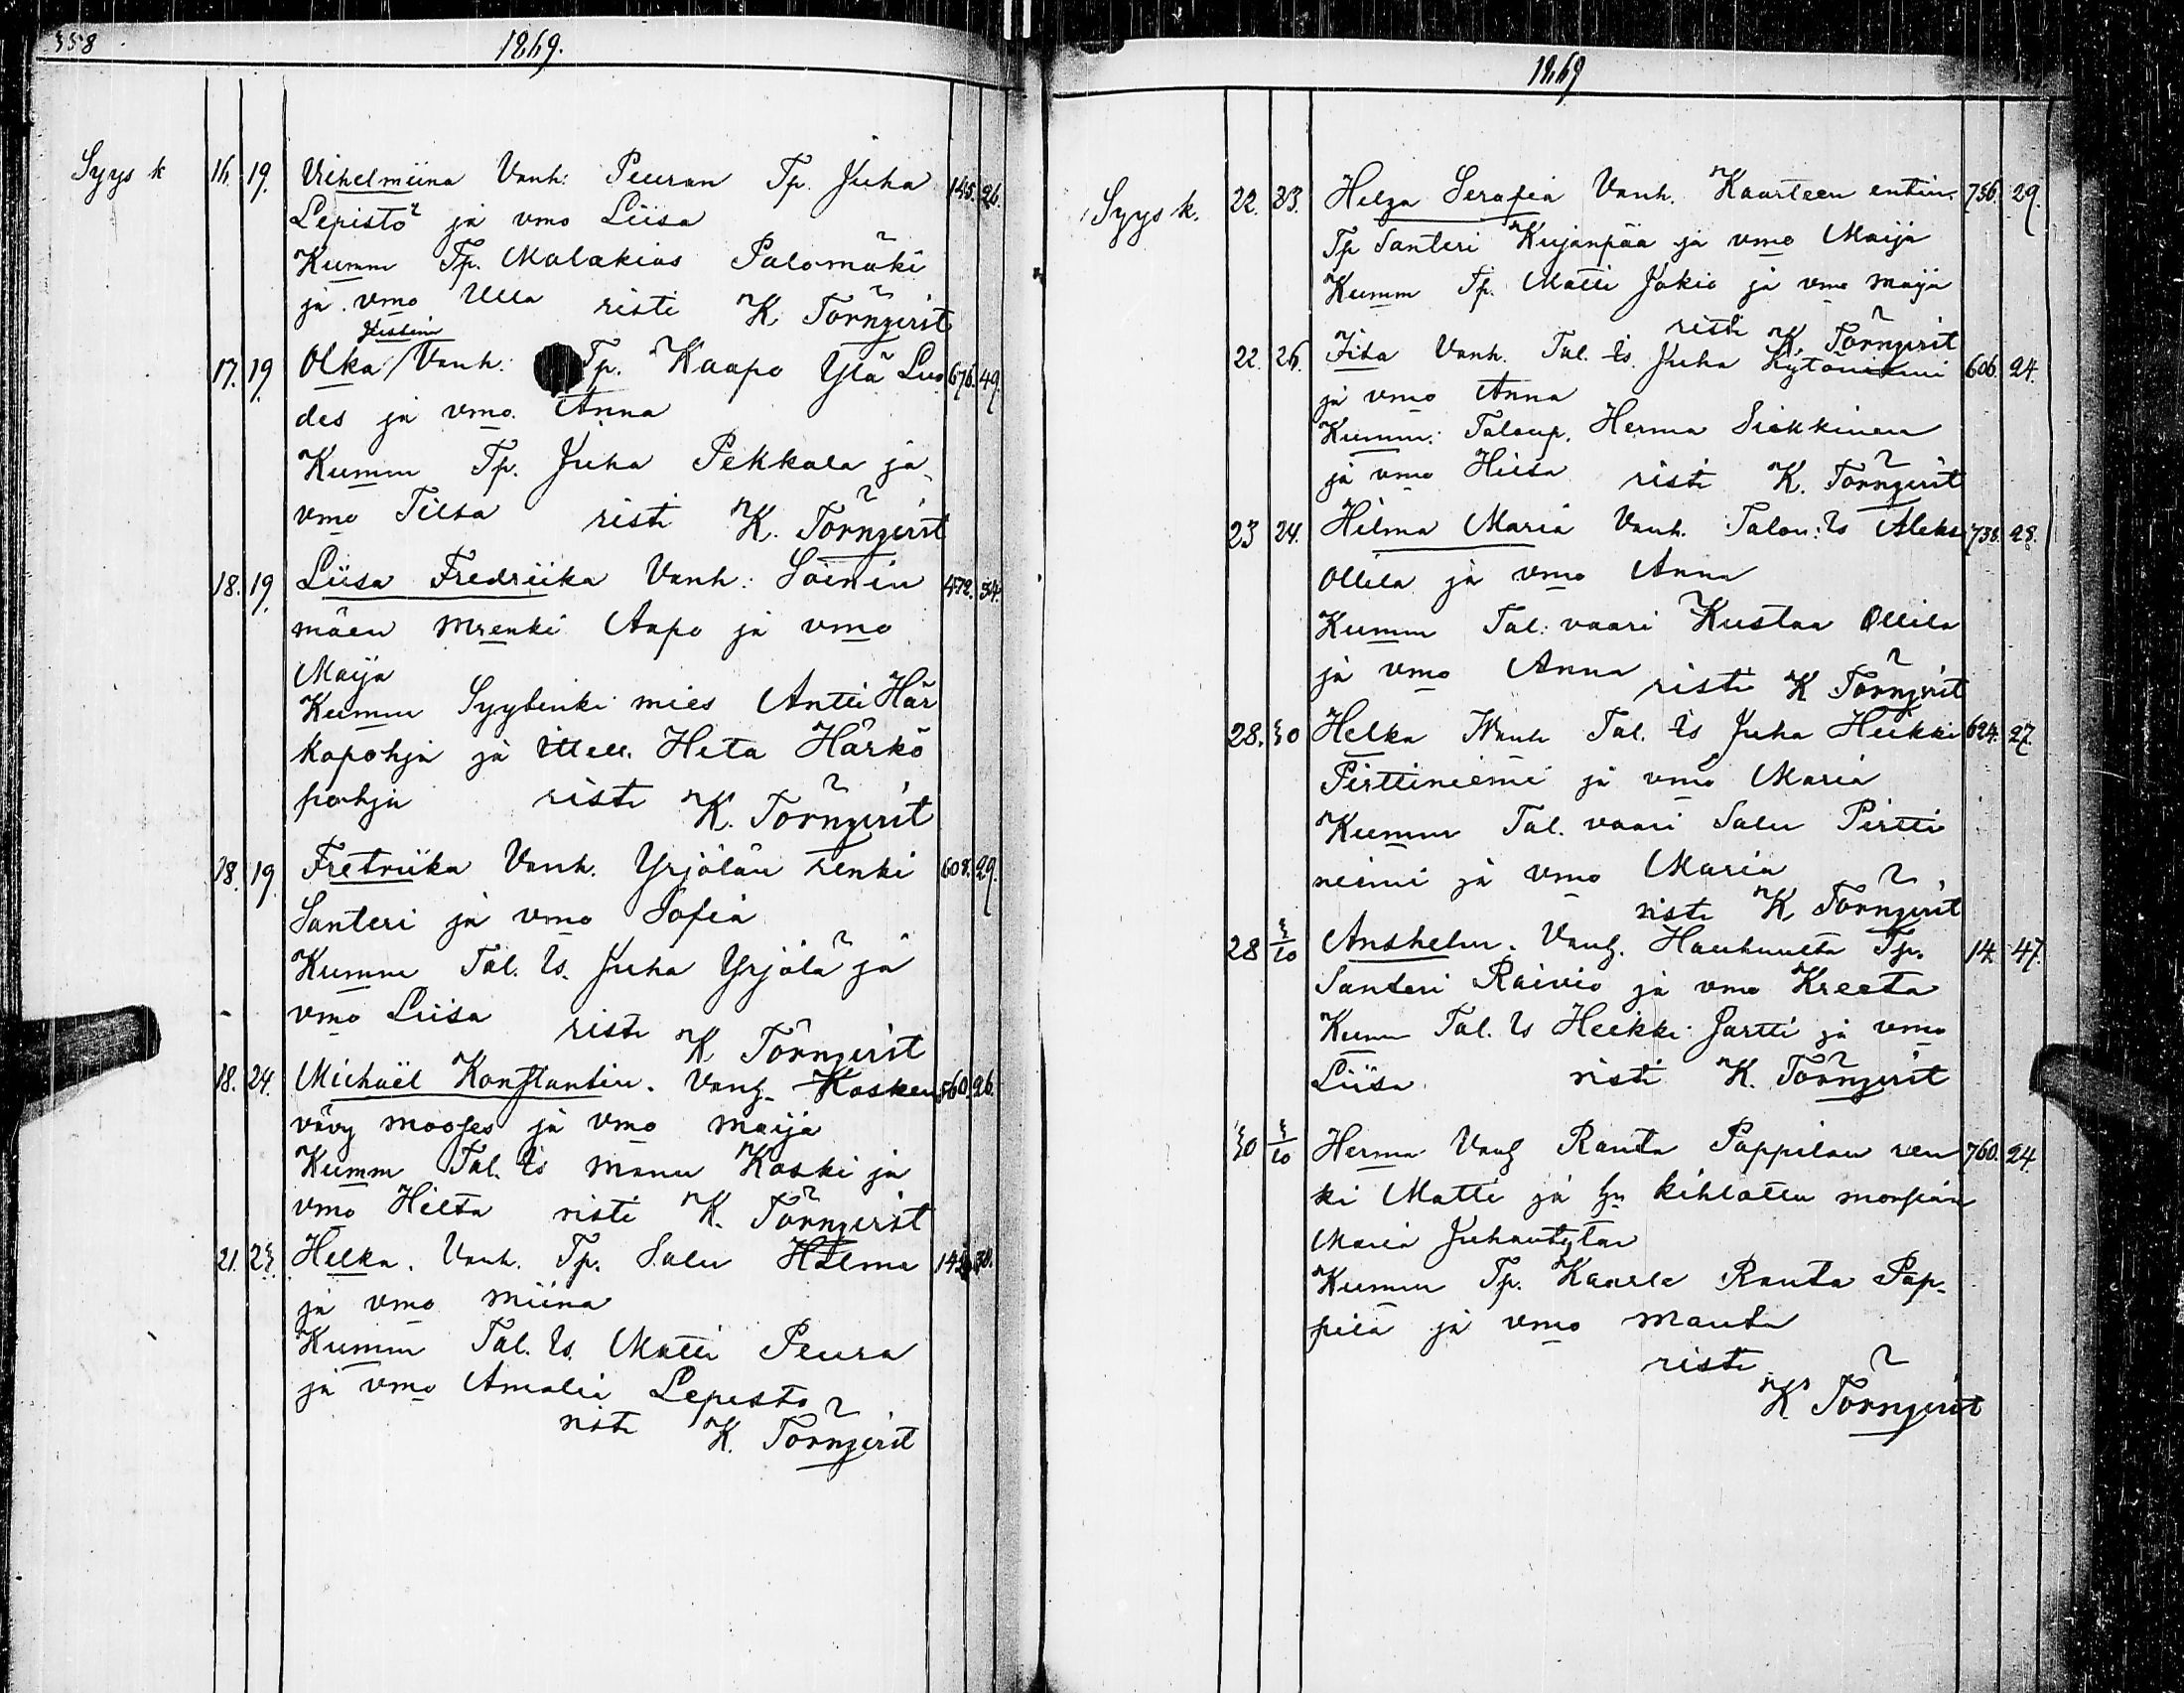 358
1869.
Syysk
16. 19. Vihelmiina Vanh: Peuran Tp. Juha 145. 26.
Lepistö ja vmo Liisa
Kumm Tp. Malakias Palomäki
ja vmo Ulla risti K Törnqvist
Justiina
17. 19 Olka / Vanh: Tp. Kaapo Ylä Luo 676. 49.
des ja vmo. Anna
Kumm Tp. Juha Pekkala ja
vmo Tilta risti K. Törnqvist
18. 19. Liisa Fredriika Vanh: Soinin 472. 34.
mäen Mrenki Aapo ja vmo
Maija
Kumm Syytinki mies Antti Här
kopohja ja Heta Härkö
pohja risti K. Törnqvist
18. 19. Fretriika Vanh. Yrjölän renki 608. 29.
Santeri ja vmo Sofia
Kumm Tal. Is. Juha Yrjölä ja
vmo Liisa risti K Törnqvist
18. 24. Michaël Konstantin. Vanh. Kosken 560. 26.
vävy Mooses ja vmo Maija
Kumm Tal. Is Manu Koski ja
vmo Hilta risti K. Törnqvist
21. 23. Helka. Vanh. Tp. Salu Halme 30.
ja vmo Miina
Kumm Tal. Is. Matti Peura
ja vmo Amalia Lepistö
risti K. Törnqvist
1869
Syysk.
22. 23. Helga Serafia Vanh. Kaarteen entin. 756. 29.
Tp Santeri Kujanpää ja vmo Maija
Kumm Tp. Matti Jokio ja vmo Maija
risti K. Törnqvist
22. 26. Iita Vanh. Tal. Is. Juha Kytöniemi 606. 24.
ja vmo Anna
Kumm: Taloup. Herma Siikkinen
ja vmo Hiita risti K. Törnqvist
23 24. Hilma Maria Vanh. Talon: Is Aleks 738. 28.
Ollila ja vmo Anna
Kumm Tal: vaari Kustaa Ollila
ja vmo Anna risti K Törnqvist
28. 30 Helka Vanh Tal. Is Juha Heikki 624. 27.
Pirttiniemi ja vmo Maria
Kumm Tal. vaari Salu Pirtti
niemi ja vmo Maria
risti K Törnqvist
28 3/10 Anshelm. Vanh. Hauhuulta Tp. 14. 47.
Santeri Raivio ja vmo Kreeta
Kumm Tal. Is Heikki Jartti ja vmo
Liisa. risti K. Törnqvist
30 3/10 Herma Vanh Ranta Pappilan ren 760. 24.
ki Matti ja hn kihlattu morsian
Maria Juhantytär
Kumm Tp. Kaarle Ranta Pap-
pila ja vmo Manta
risti
K Törnqvist